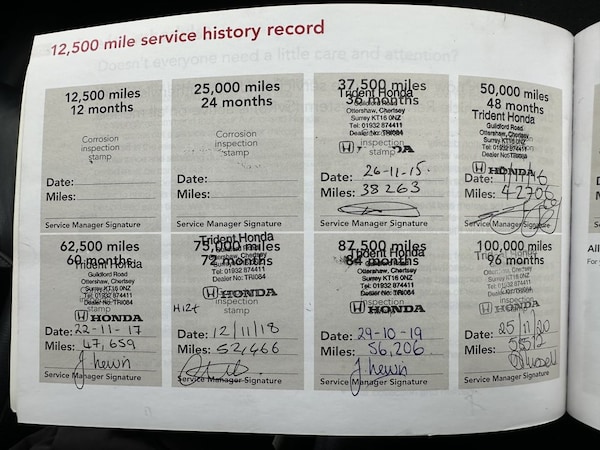 12,500 mile service history record
12,500 miles
12 months
Corrosion
inspection
stamp
Date:
Miles:
Service Manager Signature
25,000 miles
24 months
Corrosion
inspection
stamp
Date:
Miles:
Service Manager Signature
37,500 miles
Trident Honda
36 months
Guildford Road
Ottershaw, Chertsey
Surrey KT16 0NZ
Tel: 01932 874411
Dealer No: TRI084
stamp
Date: 26-11-15.
Miles: 38263
Service Manager Signature
50,000 miles
48 months
Trident Honda
Guildford Road
Ottershaw, Chertsey
Surrey KT16 0NZ
Tel: 01932 874411
Dealer No: TRI084
stamp
HONDA
Date:
Miles: 42706
Service Manager Signature
62,500 miles
60 months
Trident Honda
Guildford Road
Ottershaw, Chertsey
Surrey KT16 0NZ
Tel: 01932 874411
Dealer No: TRI084
inspection
HONDA
Date: 22-11-17
Miles: 47,659
J Lewis
Service Manager Signature
Trident Honda
75,000 miles
72 months
Guildford Road
Ottershaw, Chertsey
Surrey KT16 0NZ
Tel: 01932 874411
Dealer No: TRI084
inspection
HONDA
Date: 12/11/18
Miles: 52,466
Service Manager Signature
87,500 miles
Trident Honda
84 months
Guildford Road
Ottershaw, Chertsey
Surrey KT16 0NZ
Tel: 01932 874411
Dealer No: TRI084
inspection
HONDA
Date: 29-10-19
Miles: 56,206
J Lewis
Service Manager Signature
100,000 miles
Trident Honda
96 months
Ottershaw, Chertsey
Surrey KT16 0NZ
Tel: 01932 874411
Dealer No: TRI084
inspection
HONDA
Date: 25/11/20
Miles:
Service Manager Signature